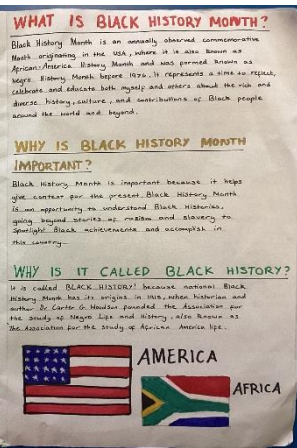 WHAT IS BLACK HISTORY MONTH?
Black History Month is an annually observed commemorative
Month originating in the USA, where it is also known as
African-America History Month and was formed known as
Negro History Month before 1976. It represents a time to reflect,
celebrate and educate both myself and others about the rich and
diverse history, culture, and contributions of Black people
around the world and beyond.
WHY IS BLACK HISTORY MONTH
IMPORTANT?
Black History Month is important because it helps
give context for the present. Black History Month
is an opportunity to understand Black Histories,
going beyond stories of racism and slavery to
spotlight Black achievements and accomplish in
this country.
WHY IS IT CALLED BLACK HISTORY?
It is called BLACK HISTORY! because national Black
History Month has its origins in 1915, when historian and
author Dr Carter G Woodson founded the Association for
the study of Negro Life and History, also known as
The Association for the study of African America life.
AMERICA
AFRICA